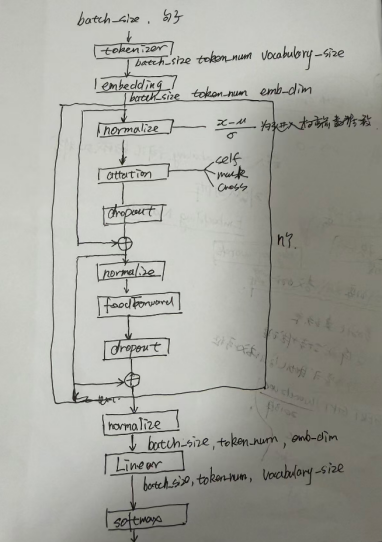 batch_size, 句子
tokenizer
batch_size token_num vocabulary-size
embedding
batch_size token_num emb-dim
normalize
x-μ
σ
attation
self
mask
cross
dropout
n个.
normalize
feedforward
dropout
normalize
batch_size, token_num, emb-dim
Linear
batch_size, token_num, vocabulary-size
softmax